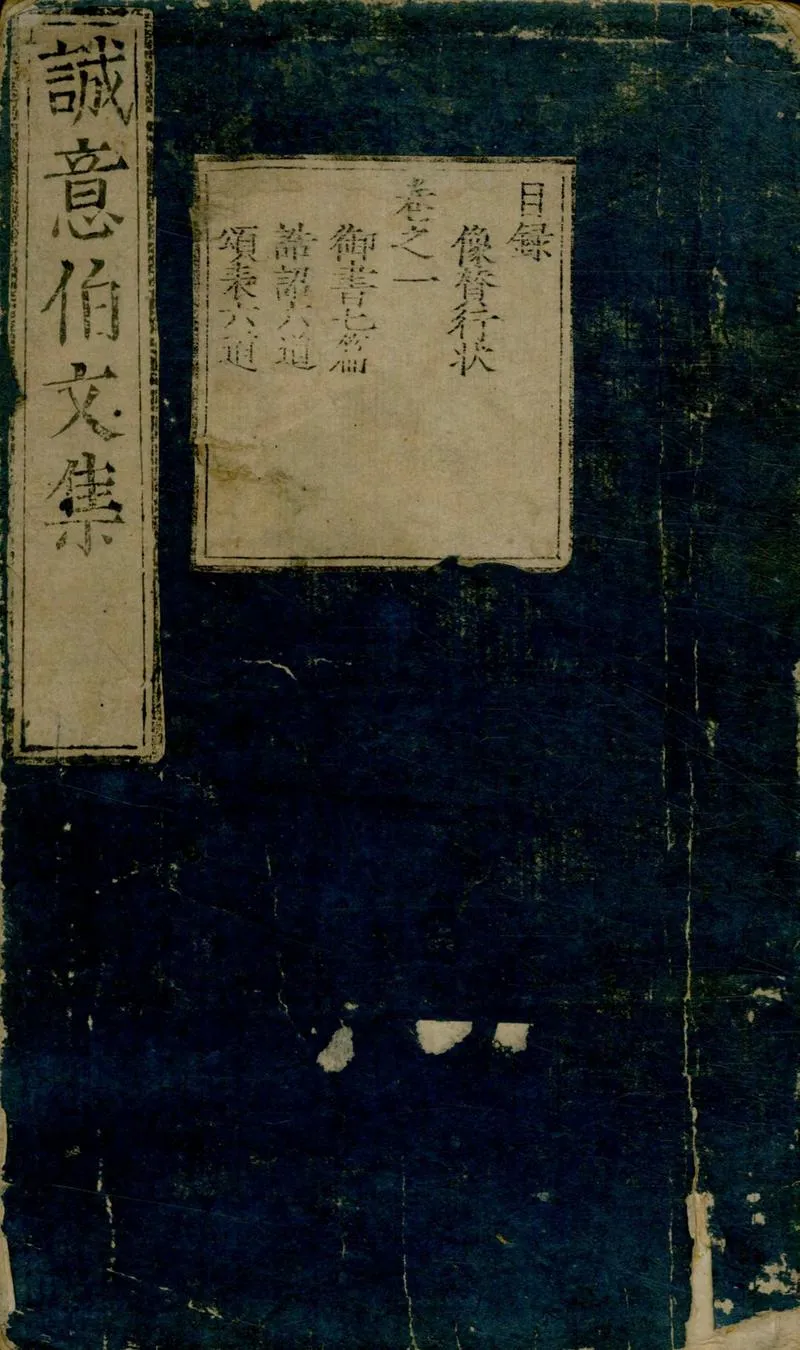 誠意伯文集
目録
像贊行狀
卷之一
御書七篇
誥詔六道
頌表六道